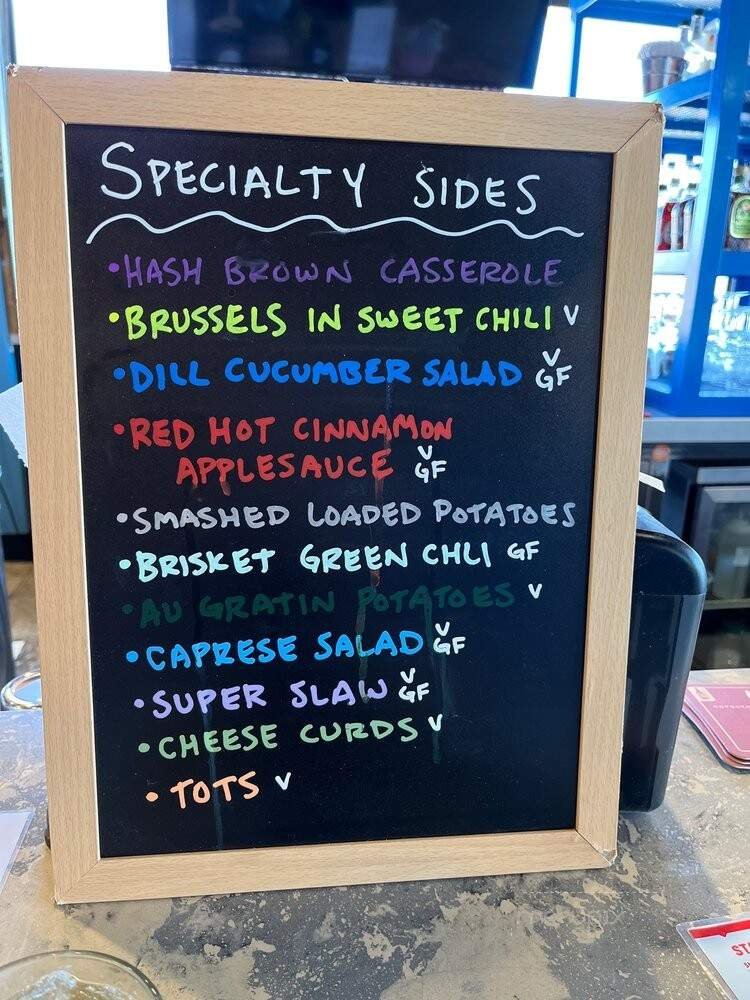 SPECIALTY SIDES
•HASH BROWN CASSEROLE
•BRUSSELS IN SWEET CHILI V
•DILL CUCUMBER SALAD V GF
•RED HOT CINNAMON
APPLESAUCE V GF
•SMASHED LOADED POTATOES
•BRISKET GREEN CHLI GF
•AU GRATIN POTATOES V
•CAPRESE SALAD V GF
•SUPER SLAW V GF
•CHEESE CURDS V
•TOTS V